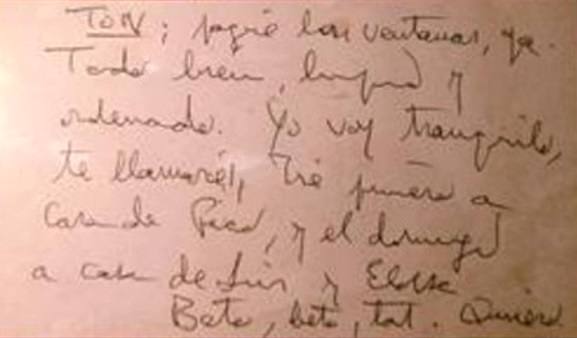 TON; pagué las ventanas, ya.
Todo bien, limpio y
ordenado. Yo voy tranquilo,
te llamaré, iré primero a
casa de Paco, y el domingo
a casa de Luis y Elisa
Beto, beto, tat. Quiero